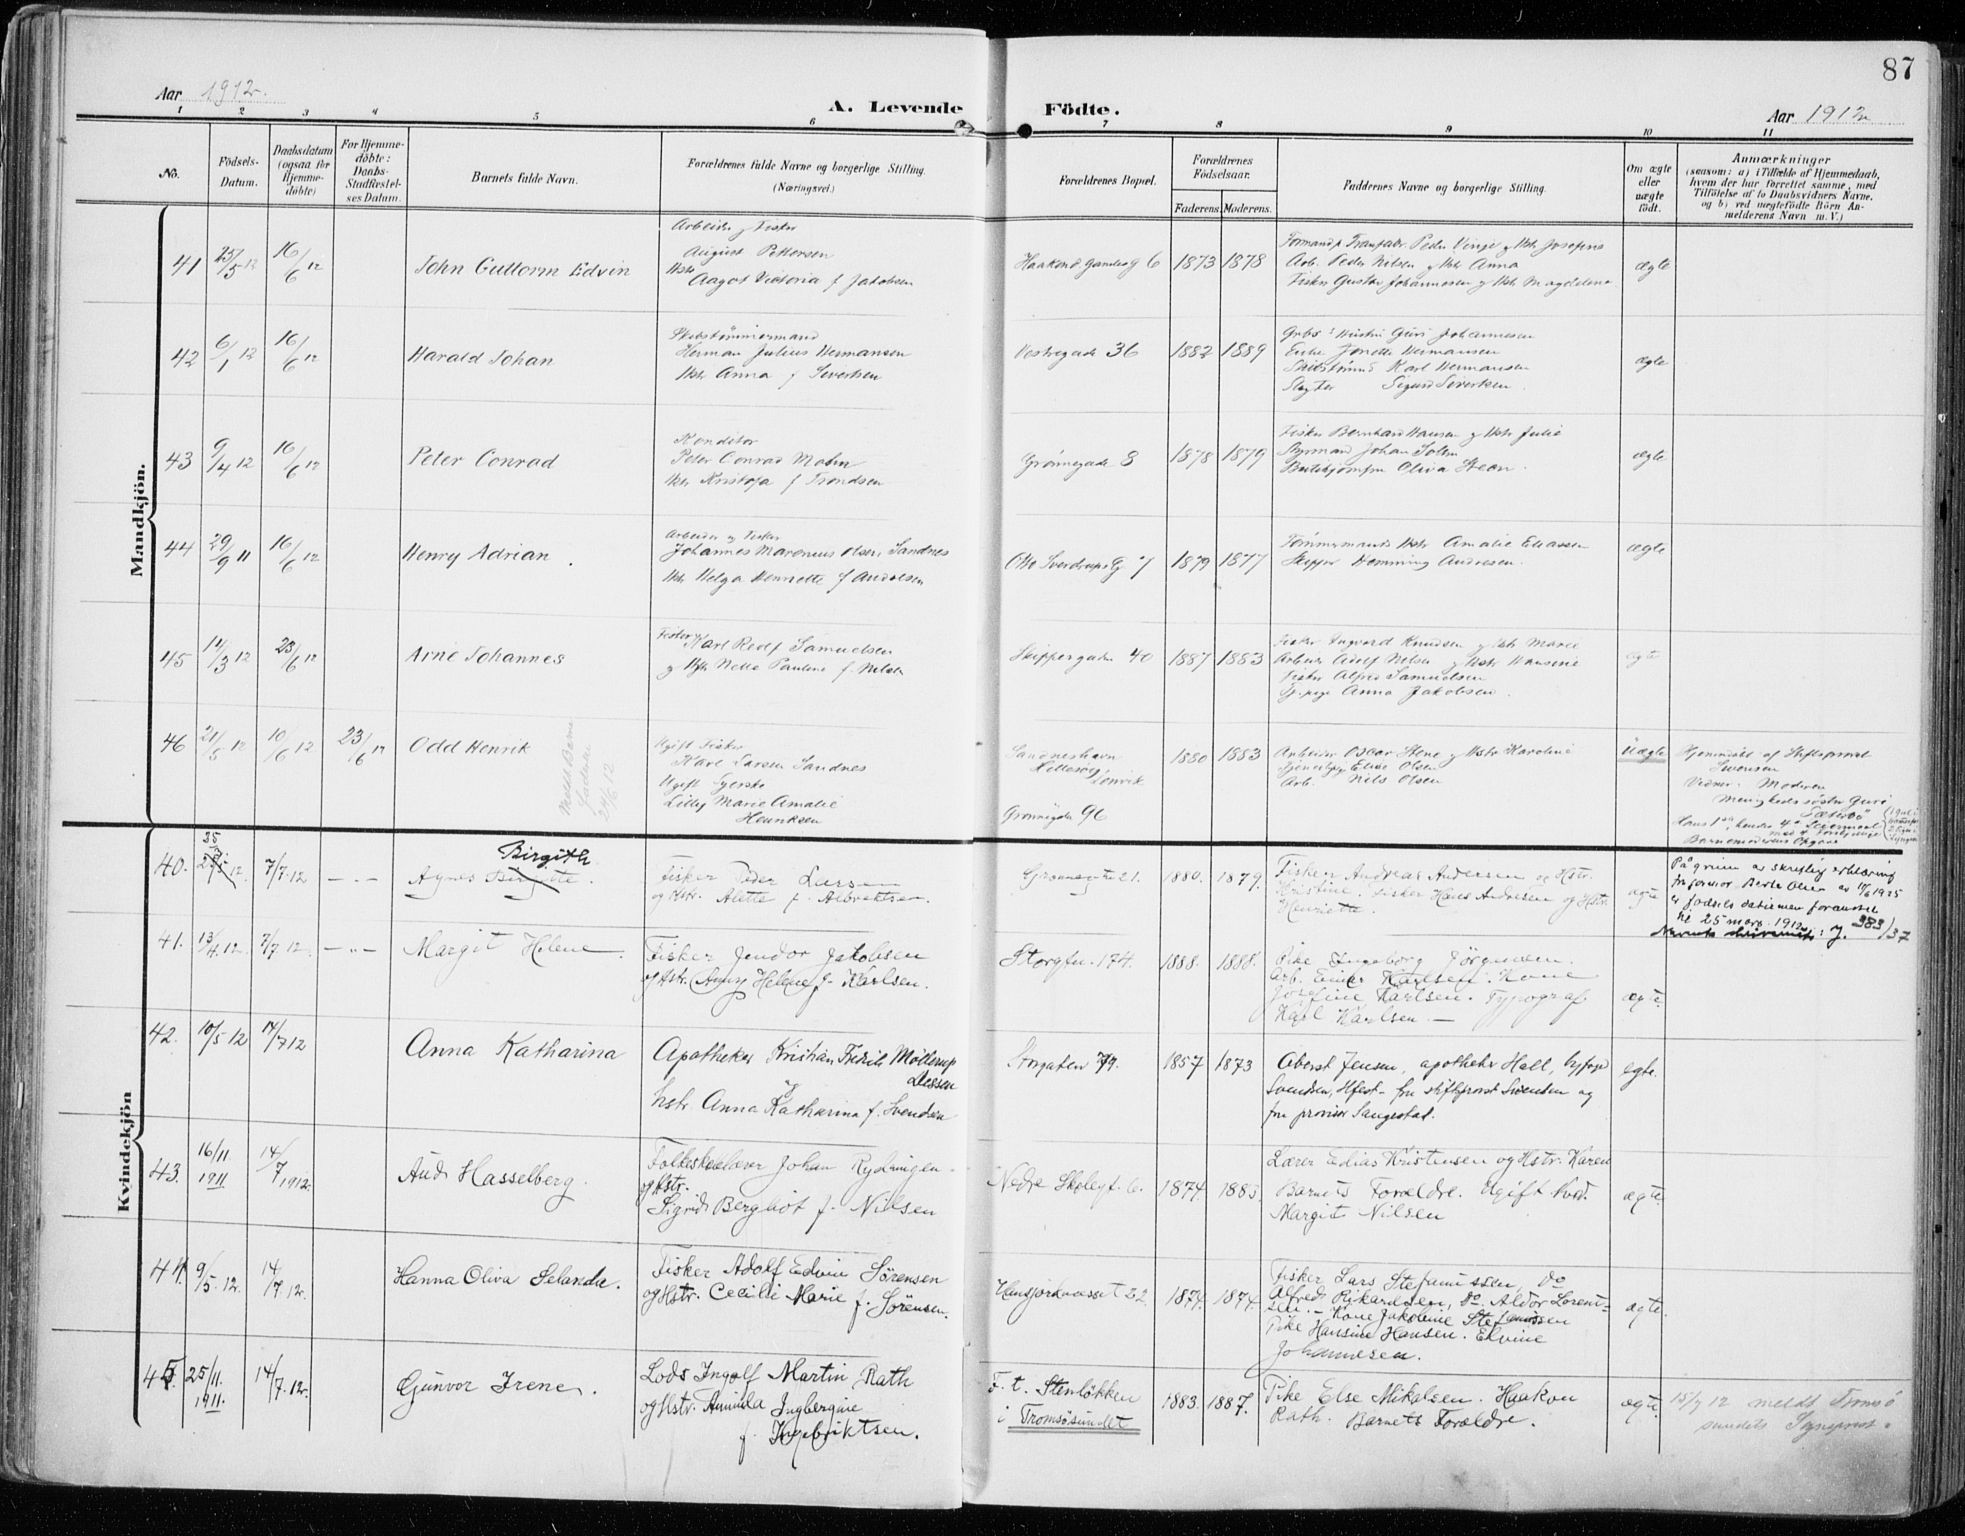 87
Aar 1912.
A. Levende Födte.
Aar 1912
1 2 3 4 5 6 7 8 9 10 11
No.
Födsels-
Datum.
Daabsdatum
(ogsaa for
Hjemme-
döbte)
For Hjemme-
döbte:
Daabs-
Stadfæstel-
ses Datum.
Barnets fulde Navn.
Forældrenes fulde Navne og borgerlige Stilling.
(Næringsvei.)
Forældrenes Bopæl.
Forældrenes
Födselsaar.
Faderens. Moderens.
Faddernes Navne og borgerlige Stilling.
Om ægte
eller
uægte
födt.
Anmærkninger
(saasom: a) i Tilfælde af Hjemmedaab,
hvem der har forrettet samme, med
Tilföielse af to Daabsvidners Navne.
og b) ved uægtefödte Börn An-
melderens Navn m. V.)
Mandkjön.
41 25/5 12 16/6 12 John Guttorm Edvin
Arbeider og Fisker
August Pettersen
Hstr
Aagot Victoria f Jakobsen
6 1873 1878
Arb. Peder Nilsen og Hstr Anna
Fisker Gustav Johannessen og Hstr Magdalena
ægte
42 6/1 12 16/6 12 Harald Johan
Skibstömmermand
Herman Julius Hermansen
Hstr Anna f Sivertsen
Vestregade 36 1882 1889
Hustru Guri Johannesen
Enke Jonette Hermansen
Karl Hermansen
Slagter Sigurd Sivertsen
ægte
43 9/4 12 16/6 12 Peter Conrad
Konditor
Peter Conrad Malm
Hstr Kristofa f Trondsen
Grönnegade 8 1878 1879
Fisker Bernhard Hansen og Hstr Julie
Styrmand Johan
Butikjomfru Oliva Steen.
ægte
44 29/9 11 16/6 12 Henry Adrian.
Arbeider og Fisker
Johannes Marenius Olsen Sandnes
Hstr Helga Henriette f Andresen
Otto Sverdrups G 7 1879 1877
Tömmermands Hstr Amalie Eliassen
Skipper Hemming Andresen.
ægte
45 14/3 12 23/6 12 Arne Johannes
Fisker Karl Redf Samuelsen
og Hstr Netta Pauline f. Nilsen
Skippergaden 40 1887 1883
Fisker Ingvard Knudsen og Hstr Marie
Arbeider Adolf Nilsen og Hstr Hansine
Fisker Alfred Samuelsen
Anna Jakobsen.
ægte
46 21/5 12 10/6 12 23/6 12 Odd Henrik
Ugift Fisker
Karl Larsen Sandnes
Ugift Syerske
Lilly Marie Amalie
Henriksen
Sandneshavn
Hillesöy
Lenvik
Grönnegaden 96
1880 1883
Arbeider Oscar Stene og Hstr Karoline
Elise Olsen
Arb. Nils Olsen
Uægte
Hjemmedöbt af Stiftsprovst
Svensen
Vidner: Moderen
Menighedssöster Guri
Kvindekjön
40. 25/3 12. 7/7.12 – „ – Agnes Birgitte. Birgith
Fisker Peder Larsen
og Hstr. Alette f. Albrektsen.
Grönnegte 21. 1880. 1879.
Fisker Andreas Andersen og Hstr.
Kristine. Fisker Hans Andresen og Hstr.
Henriette.
ægte
På grunn av skriftlig erklæring
fra jormor Berte Olsen av 17/6 1925
er födsels datumen forandret
til 25 mars 1912
J. 383/37
41. 13/4.12. 7/7.12. – „ – Margit Helene.
Fisker Jendor Jakobsen
og Hstr. Anny Helene f. Karlsen.
Storgtn. 174. 1888. 1888.
Pike Ingeborg Jörgensen.
Arb. Einer Karlsen. Kone
Josefine Karlsen. Typograf
Karl Karlsen. –
ægte.
42. 10/5 12 14/7 12 Anna Katharina
Apotheker Kristian Fredrik Möllerup
Dessen
og
hstr. Anna Katharina f. Svendsen
Storgaten 79. 1857 1873
Oberst Jensen, apotheker Hall, byfoged
Svendsen, Hfest – fru stiftsprovst Svendsen og
fru provisor Saugestad.
ægte.
43. 16/11 1911 14/7 1912. Aud Hasselberg.
Folkeskolelærer Johan Rydningen
og Hstr.
Sigrid Bergliot f. Nilsen
Nedre Skolegt. 6. 1874. 1883.
Lærer Edias Kristensen og Hstr. Karen
Barnets Forældre. Ugift kvd.
Margit Nilsen
ægte.
44. 9/5.12. 14/7.12. Hanna Oliva Selanda.
Fisker Adolf Edvin Sörensen
og Hstr. Cecilie Marie f. Sörensen.
Hansjordnesset 22. 1874. 1874.
Fisker Lars Stefanussen, do
Alfred Rikardsen, do. Aldor Lorent-
sen. – Kone Jakobine Stefanussen
Pike Hansine Hansen. Elvine
Johannesen.
ægte.
45. 25/11. 1911. 14/7.12. Gunvor Irene.
Lods Ingolf Martin Rath
og Hstr. Amanda Ingbergine
f. Ingebriktsen.
F. t. Stenlökken
i Tromsösundet
1883. 1887.
Pike Else Mikalsen. Haakon
Rath. Barnets Forældre.
ægte.
15/7 12 meldt Tromsö
sundets Sognprest.